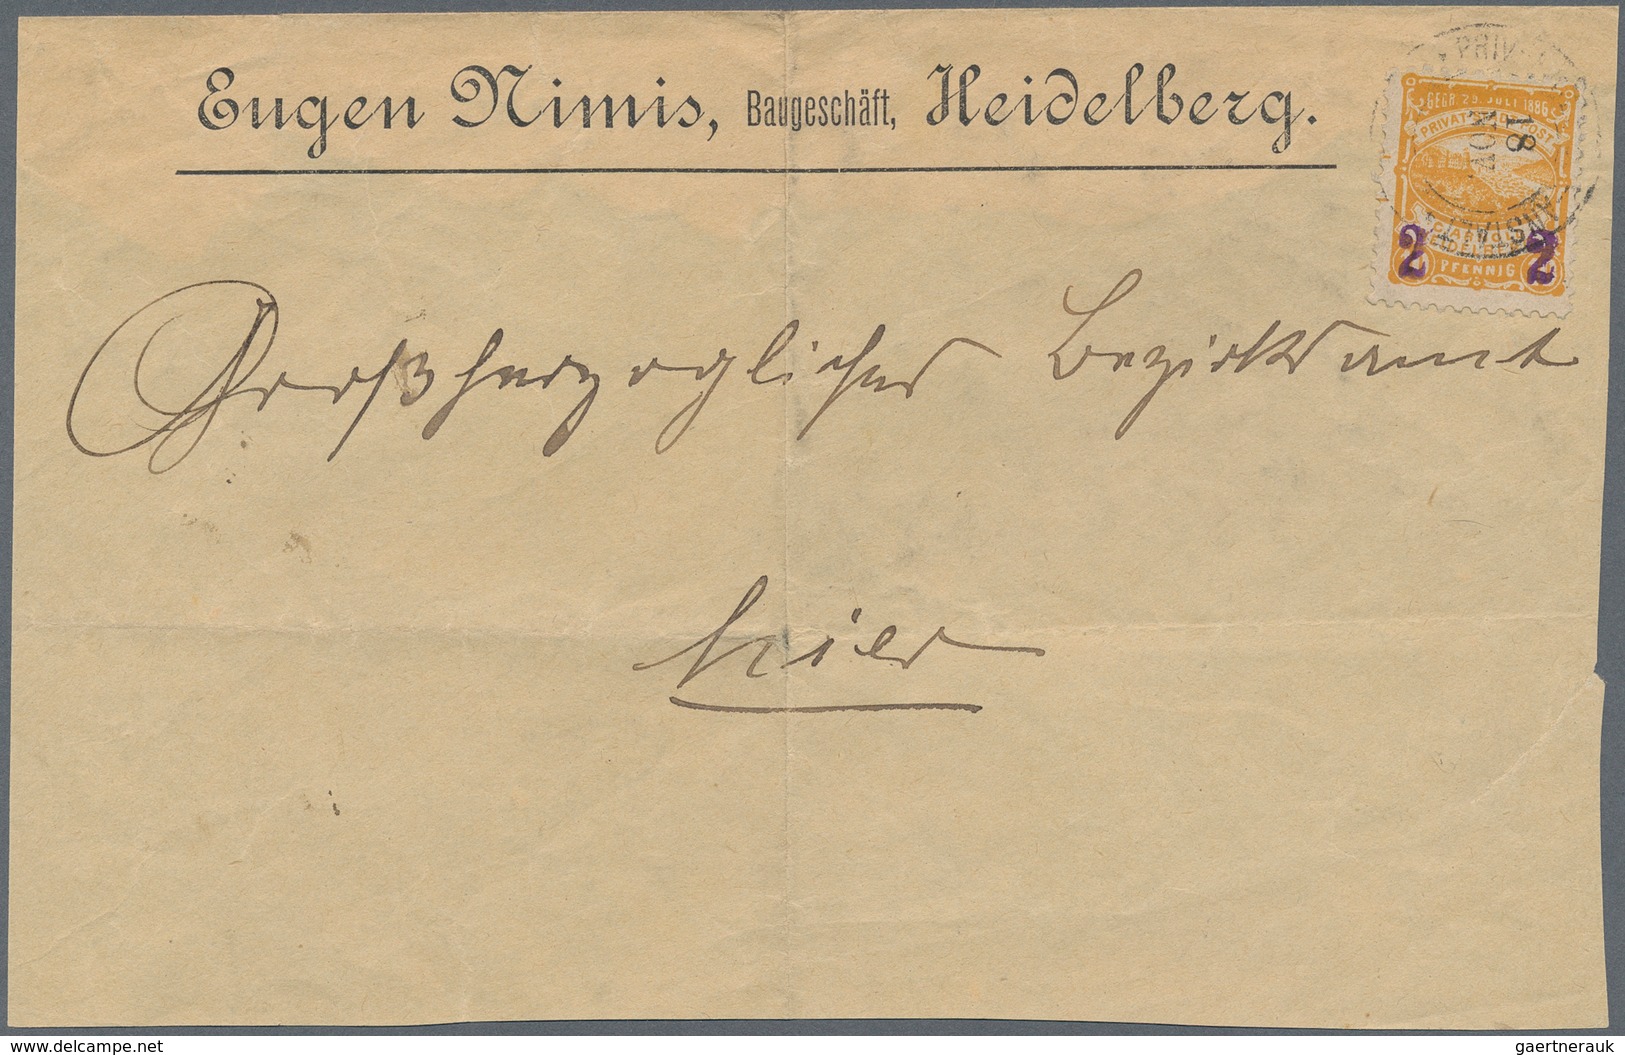 Eugen Nimis, Baugeschäft, Heidelberg.
PRIV
GEGR. 29. JULI 1886
PRIVAT STADTPOST
18
NOV
ANSTALT
HEIDELBERG
2 2
PFENNIG
Großherzogliches Bezirksamt
hier
www.delcampe.net
gaertnerauk